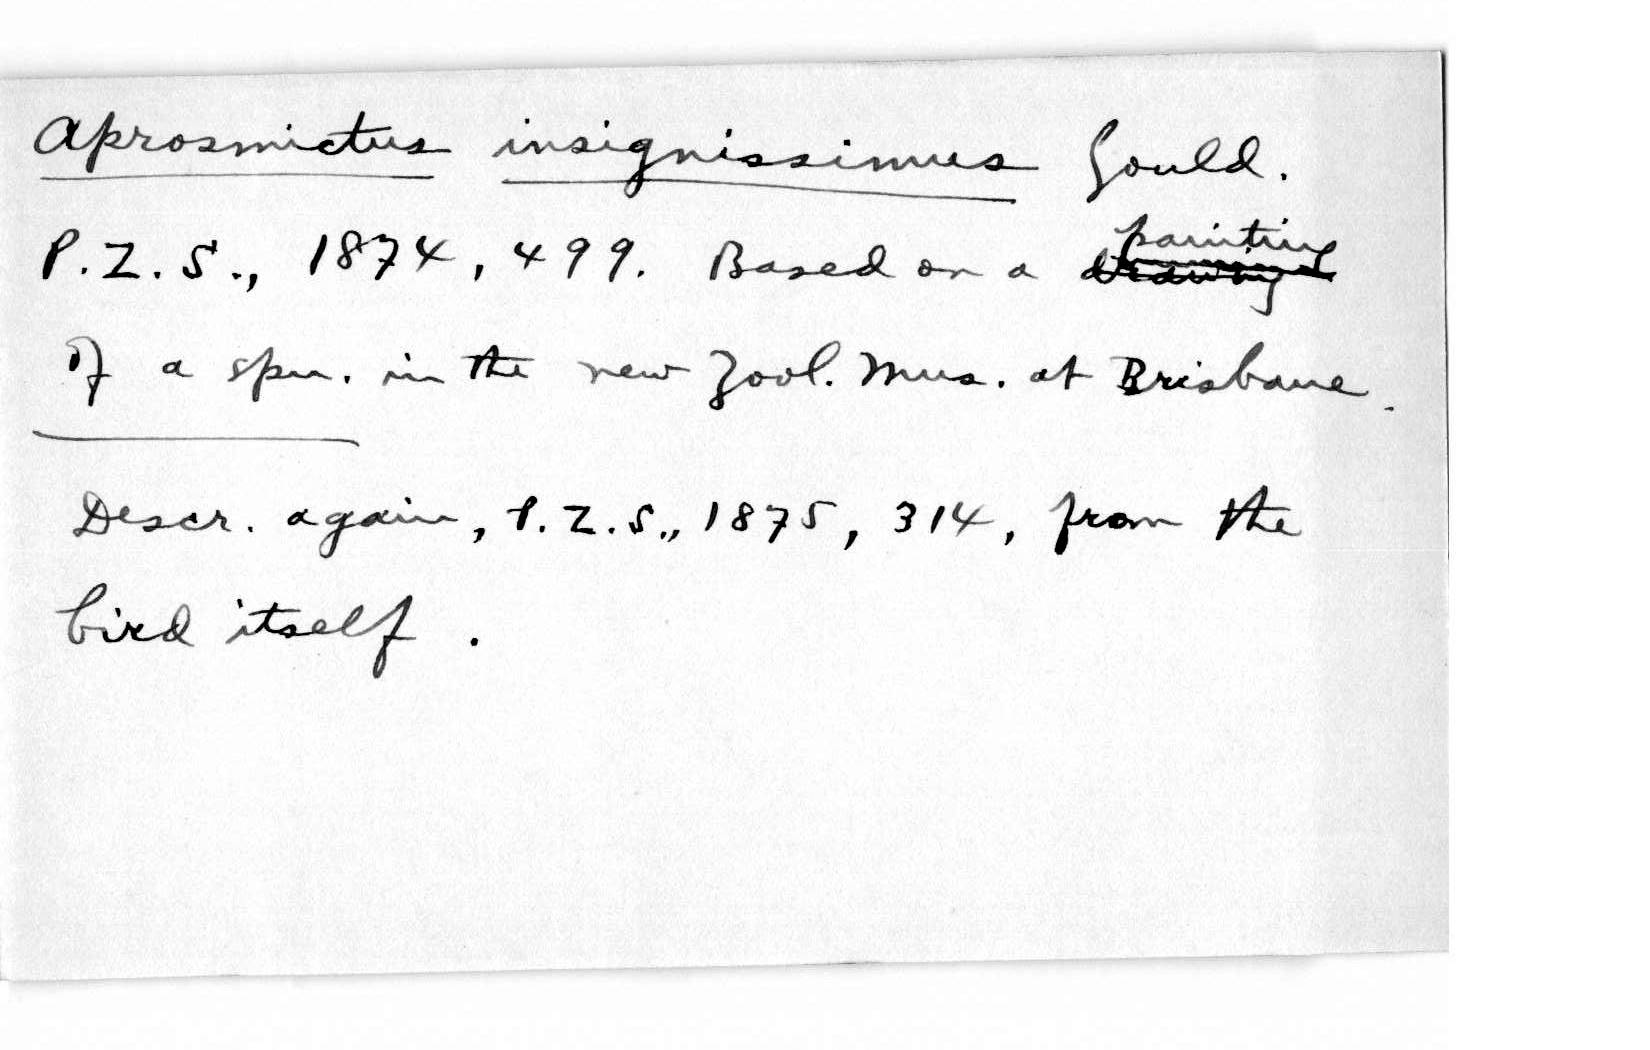 Aprosmictus insignissimus Gould.
P.Z.S., 1874, 499. Based on a drawing painting
of a spn. in the new Zool. Mus. at Brisbane.
Descr. again, P.Z.S., 1875, 314, from the
bird itself.